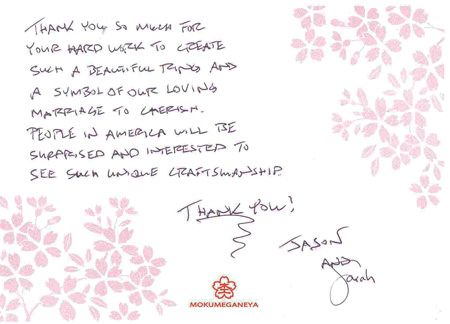 THANK YOU SO MUCH FOR
YOUR HARD WORK TO CREATE
SUCH A BEAUTIFUL RING AND
A SYMBOL OF OUR LOVING
MARRIAGE TO CHERISH.
PEOPLE IN AMERICA WILL BE
SURPRISED AND INTERESTED TO
SEE SUCH UNIQUE CRAFTSMANSHIP.
THANK YOU!
JASON
AND
Sarah
MOKUMEGANEYA